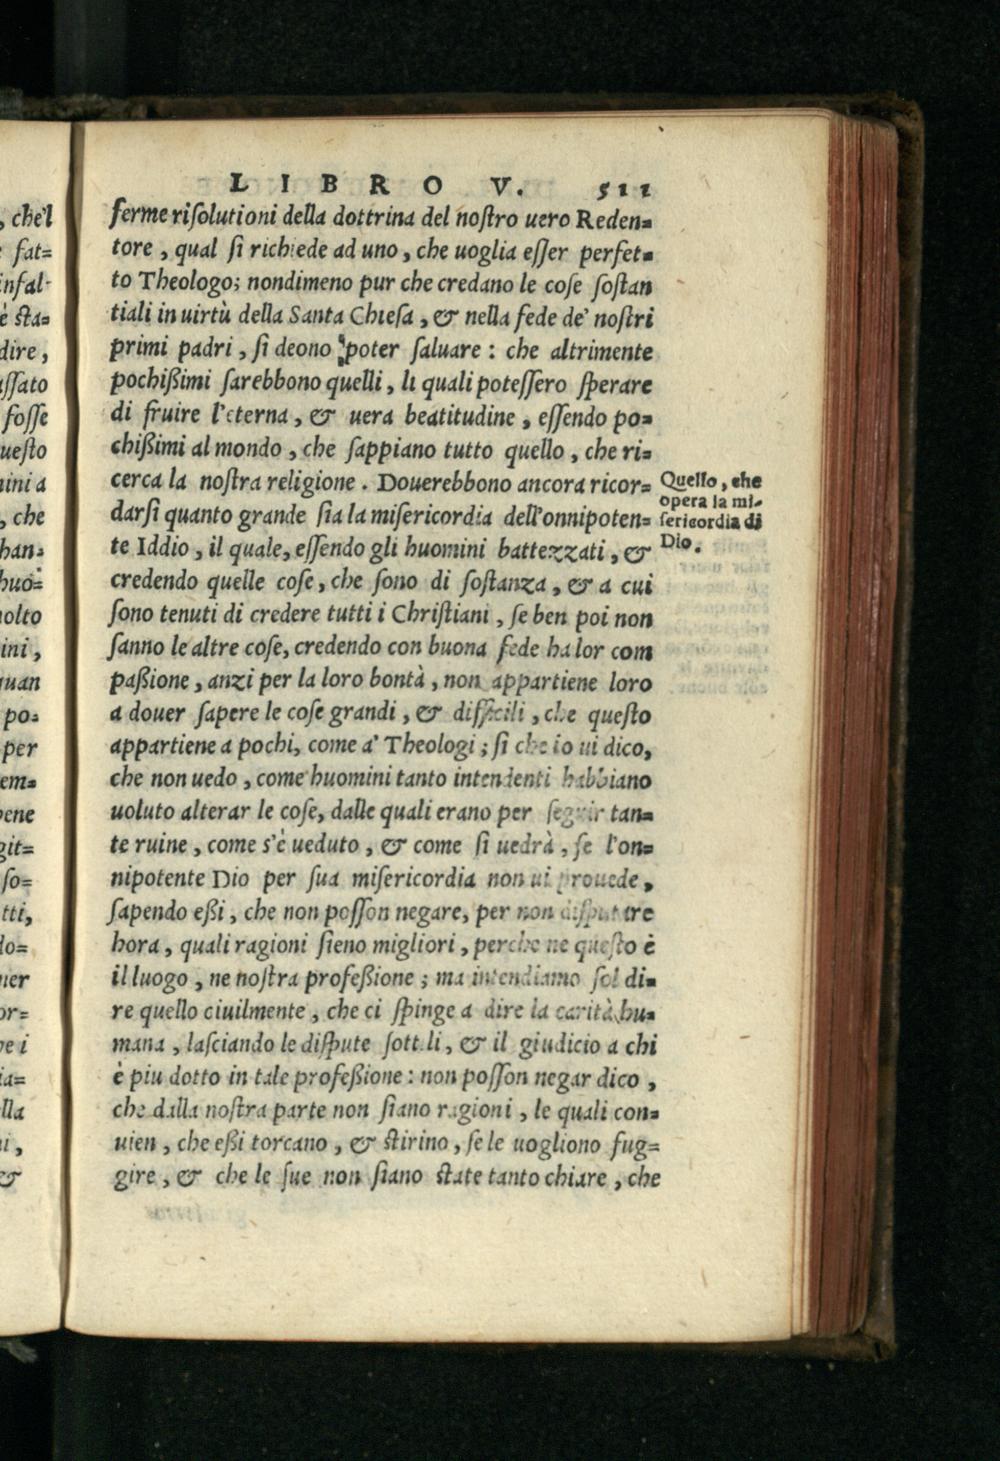 LIBRO V. 511
ferme risolutioni della dottrina del nostro uero Reden=
tore, qual si richiede ad uno, che uoglia esser perfet=
to Theologo; nondimeno pur che credano le cose sostan
tiali in uirtù della Santa Chiesa, & nella fede de' nostri
primi padri, si deono poter saluare: che altrimente
pochißimi sarebbono quelli, li quali potessero sperare
di fruire l'eterna, & uera beatitudine, essendo po=
chißimi al mondo, che sappiano tutto quello, che ri=
cerca la nostra religione. Douerebbono ancora ricor=
darsi quanto grande sia la misericordia dell'onnipoten=
te Iddio, il quale, essendo gli huomini battezzati, &
credendo quelle cose, che sono di sostanza, & a cui
sono tenuti di credere tutti i Christiani, se ben poi non
sanno le altre cose, credendo con buona fede ha lor com
paßione, anzi per la loro bontà, non appartiene loro
a douer sapere le cose grandi, & difficili, che questo
appartiene a pochi, come a' Theologi; si che io ui dico,
che non uedo, come huomini tanto intendenti habbiano
uoluto alterar le cose, dalle quali erano per seguir tan=
te ruine, come s'è ueduto, & come si uedrà, se l'on=
nipotente Dio per sua misericordia non ui prouede,
sapendo eßi, che non posson negare, per non disputare
hora, quali ragioni sieno migliori, perche ne questo è
il luogo, ne nostra profeßione; ma intendiamo sol di=
re quello ciuilmente, che ci spinge a dire la carità hu=
mana, lasciando le dispute sottili, & il giudicio a chi
è piu dotto in tale profeßione: non posson negar dico,
che dalla nostra parte non siano ragioni, le quali con=
uien, che eßi torcano, & stirino, se le uogliono fug=
gire, & che le sue non siano state tanto chiare, che
Quello, che
opera la mi-
sericordia di
Dio.
, che'l
fat=
infal-
è sta=
dire,
ssato
fosse
uesto
mini a
, che
han=
huo=
molto
ini,
quan
po=
per
em=
bene
git=
so=
tti,
lo=
ner
or=
i
ia=
lla
,
&